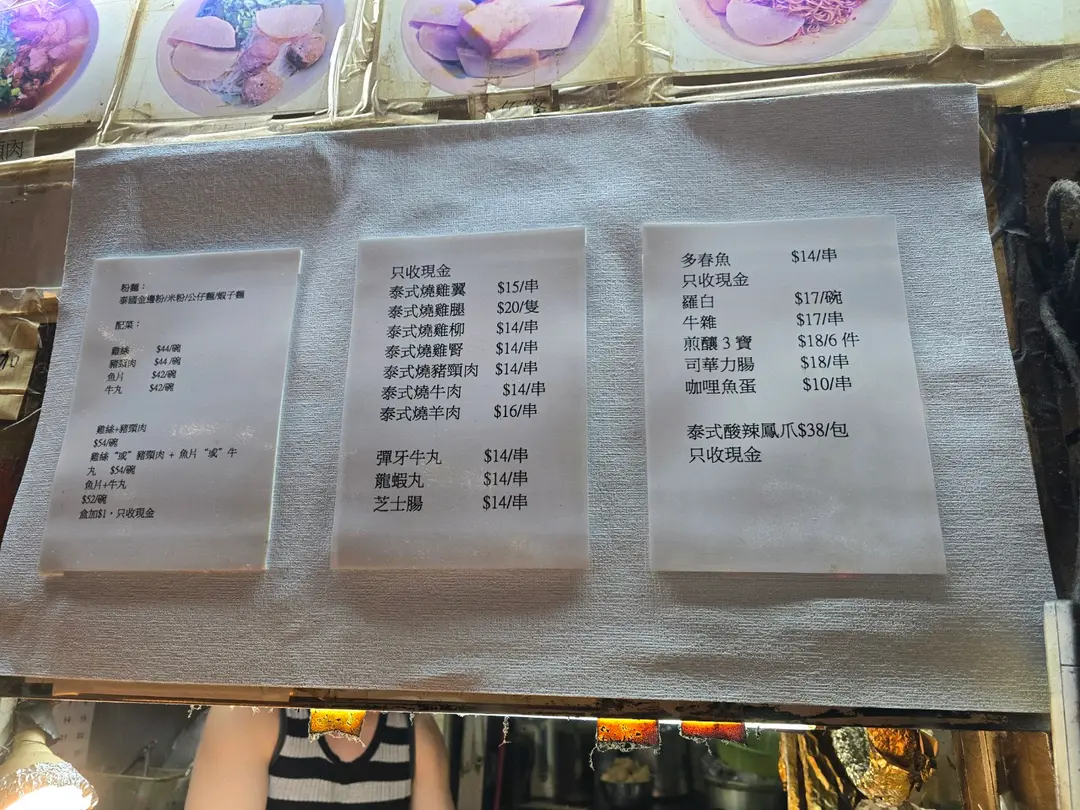 粉麵：
泰國金邊粉/米粉/公仔麵/蝦子麵
配菜：
雞絲 $44/碗
豬頸肉 $44/碗
魚片 $42/碗
牛丸 $42/碗
雞絲+豬頸肉
$54/碗
雞絲“或”豬頸肉 + 魚片“或”牛
丸 $54/碗
魚片+牛丸
$52/碗
盒加$1，只收現金
只收現金
泰式燒雞翼 $15/串
泰式燒雞腿 $20/隻
泰式燒雞柳 $14/串
泰式燒雞腎 $14/串
泰式燒豬頸肉 $14/串
泰式燒牛肉 $14/串
泰式燒羊肉 $16/串
彈牙牛丸 $14/串
龍蝦丸 $14/串
芝士腸 $14/串
多春魚 $14/串
只收現金
羅白 $17/碗
牛雜 $17/串
煎釀 3 寶 $18/6 件
司華力腸 $18/串
咖哩魚蛋 $10/串
泰式酸辣鳳爪$38/包
只收現金